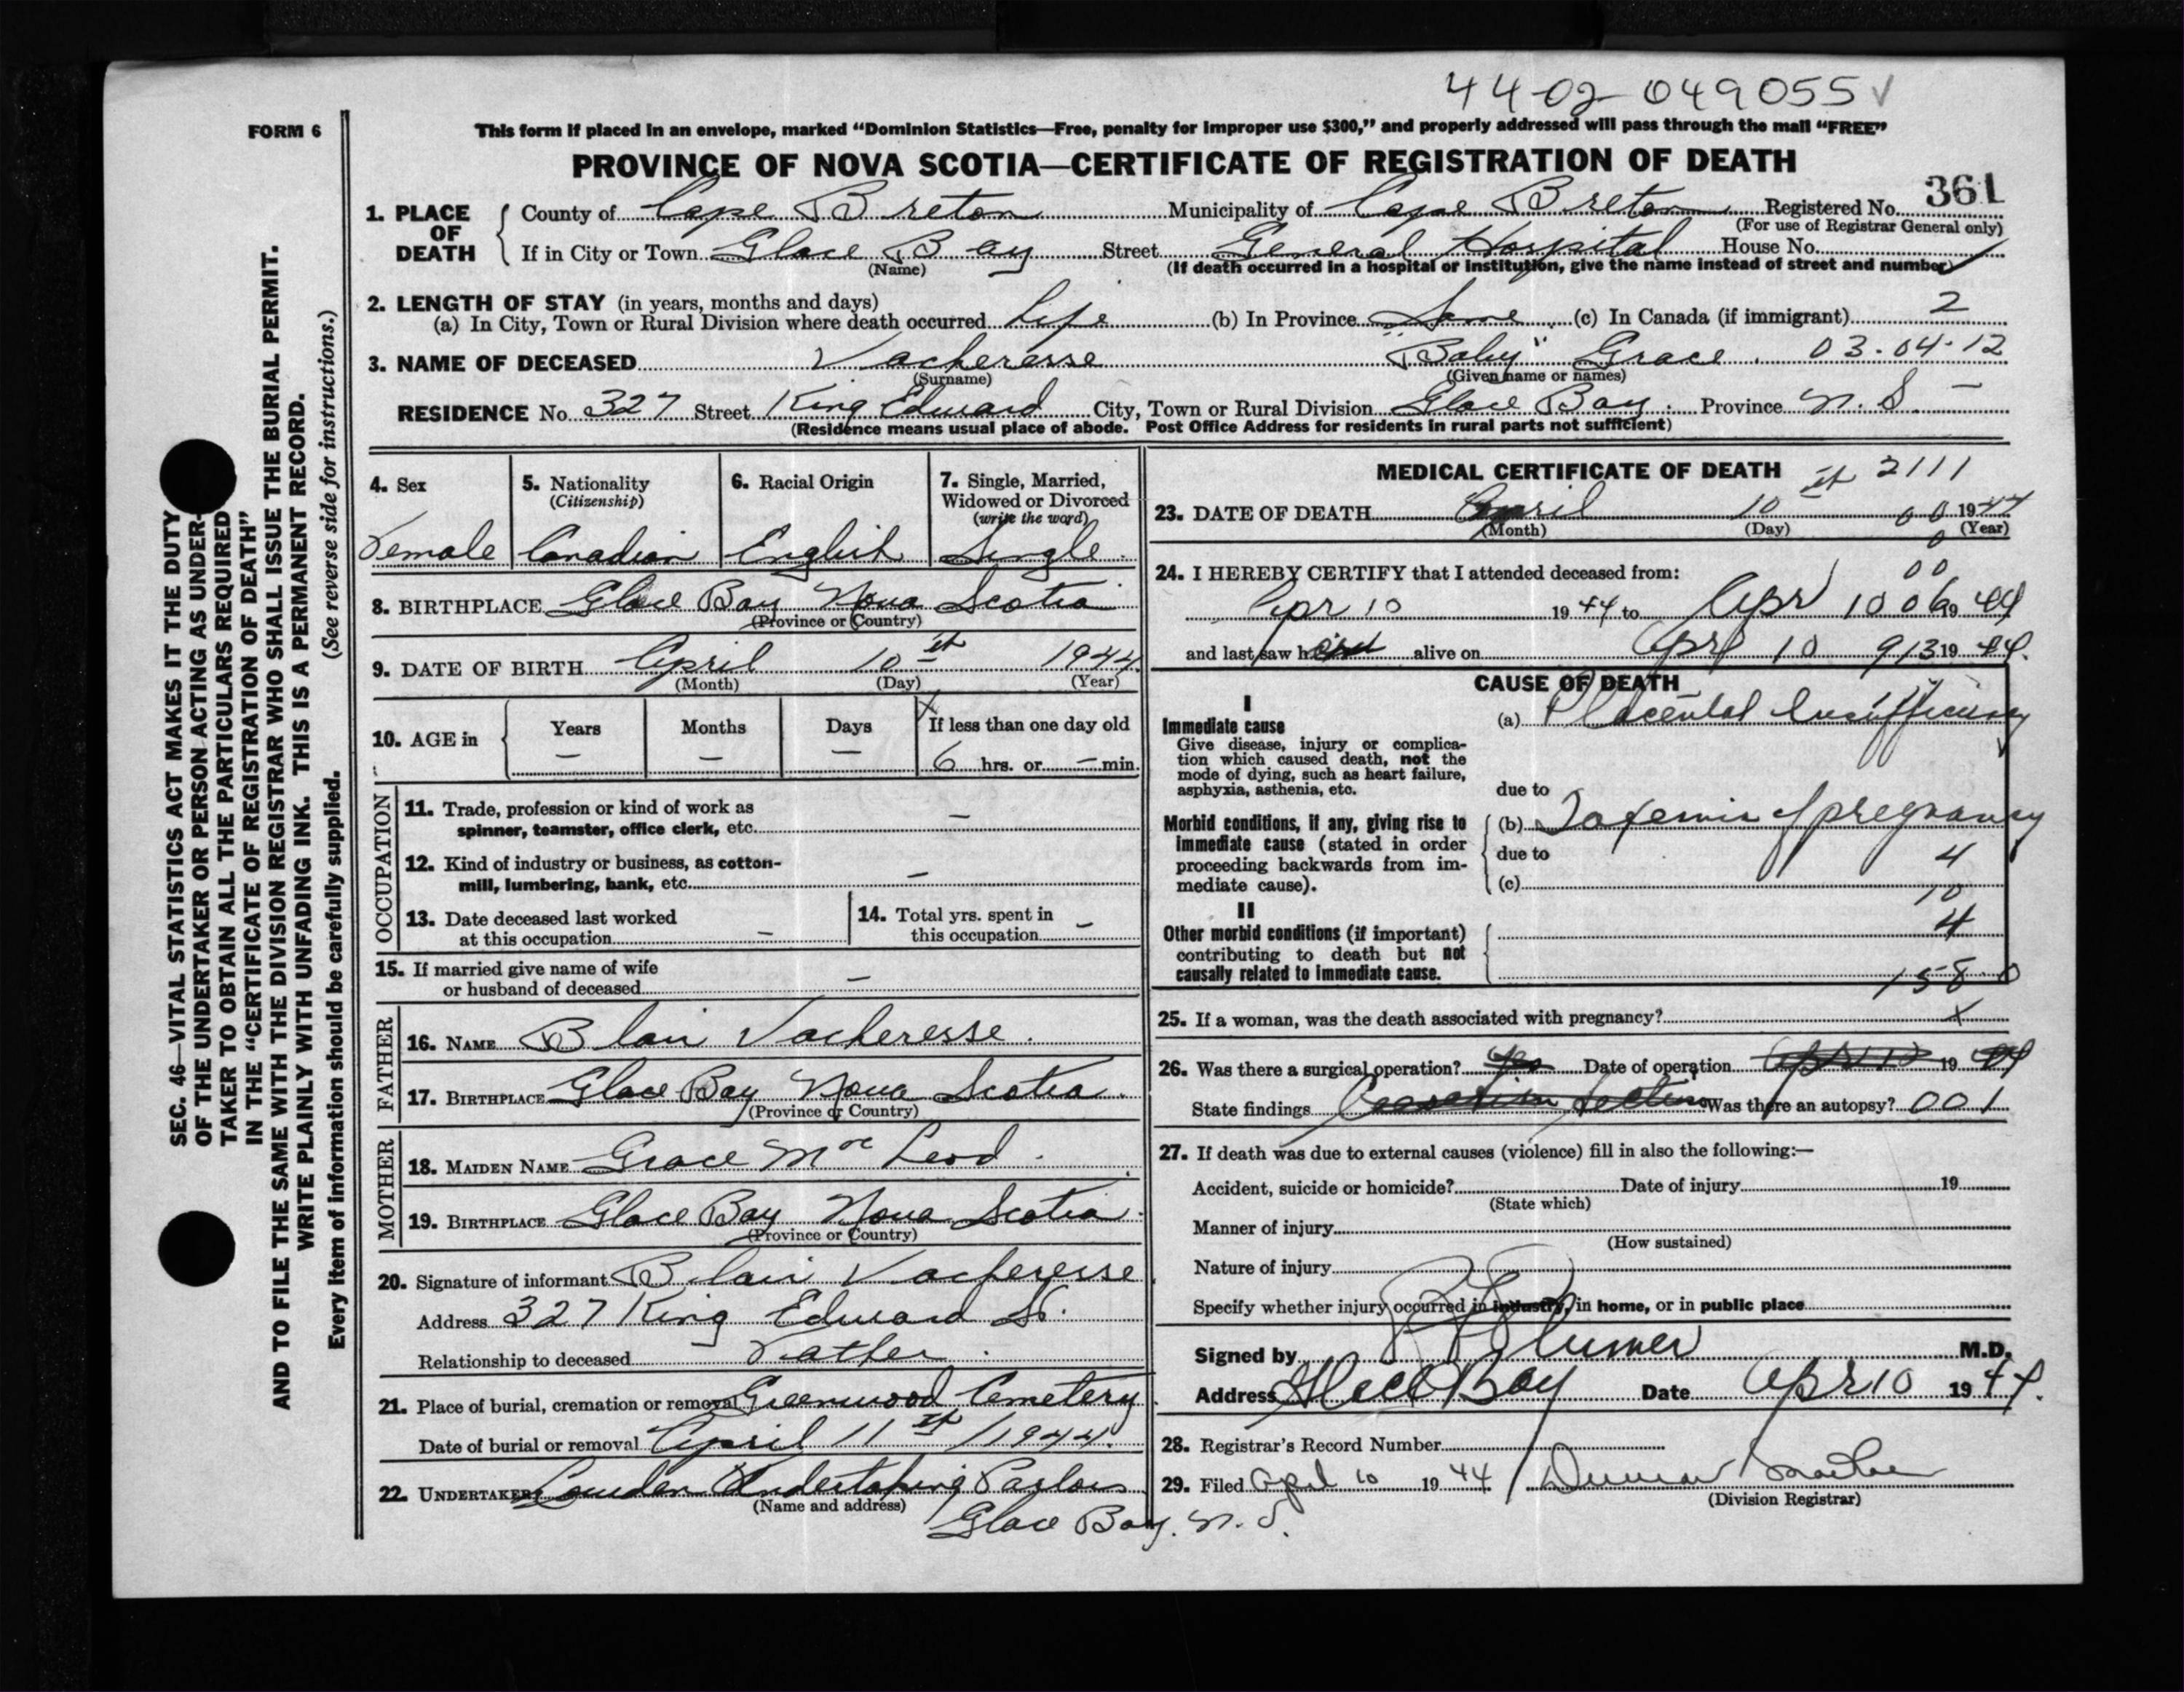 44-02-049055 ✓
FORM 6
This form if placed in an envelope, marked “Dominion Statistics—Free, penalty for improper use $300,” and properly addressed will pass through the mail “FREE”
PROVINCE OF NOVA SCOTIA—CERTIFICATE OF REGISTRATION OF DEATH
SEC. 46—VITAL STATISTICS ACT MAKES IT THE DUTY
OF THE UNDERTAKER OR PERSON ACTING AS UNDER-
TAKER TO OBTAIN ALL THE PARTICULARS REQUIRED
IN THE “CERTIFICATE OF REGISTRATION OF DEATH”
AND TO FILE THE SAME WITH THE DIVISION REGISTRAR WHO SHALL ISSUE THE BURIAL PERMIT.
WRITE PLAINLY WITH UNFADING INK. THIS IS A PERMANENT RECORD.
Every item of information should be carefully supplied. (See reverse side for instructions.)
361
1. PLACE OF DEATH County of Cape Breton Municipality of Cape Breton Registered No.
(For use of Registrar General only)
If in City or Town Glace Bay Street General Hospital House No.
(Name) (If death occurred in a hospital or institution, give the name instead of street and number)
2. LENGTH OF STAY (in years, months and days)
(a) In City, Town or Rural Division where death occurred Life (b) In Province Same (c) In Canada (if immigrant) 2
3. NAME OF DECEASED Vacheresse "Baby" Grace. 03-04-12
(Surname) (Given name or names)
RESIDENCE No. 327 Street King Edward City, Town or Rural Division Glace Bay. Province N.S. —
(Residence means usual place of abode. Post Office Address for residents in rural parts not sufficient)
4. Sex
5. Nationality
(Citizenship)
6. Racial Origin
7. Single, Married,
Widowed or Divorced
(write the word)
Female Canadian English Single.
8. BIRTHPLACE Glace Bay Nova Scotia
(Province or Country)
9. DATE OF BIRTH April 10 1944
(Month) (Day) (Year)
10. AGE in Years Months Days If less than one day old
— — — 6 hrs. or — min.
OCCUPATION
11. Trade, profession or kind of work as
spinner, teamster, office clerk, etc. —
12. Kind of industry or business, as cotton-
mill, lumbering, bank, etc. —
13. Date deceased last worked
at this occupation —
14. Total yrs. spent in
this occupation —
15. If married give name of wife
or husband of deceased —
FATHER
16. NAME Blair Vacheresse.
17. BIRTHPLACE Glace Bay Nova Scotia.
(Province or Country)
MOTHER
18. MAIDEN NAME Grace Mc Leod.
19. BIRTHPLACE Glace Bay Nova Scotia.
(Province or Country)
20. Signature of informant Blair Vacheresse
Address 327 King Edward St.
Relationship to deceased Father.
21. Place of burial, cremation or removal Greenwood Cemetery
Date of burial or removal April 11 1944.
22. UNDERTAKER Undertaking Parlors
(Name and address)
Glace Bay. N.S.
MEDICAL CERTIFICATE OF DEATH 2111
23. DATE OF DEATH April 10 00 1944
(Month) (Day) (Year)
0
24. I HEREBY CERTIFY that I attended deceased from: 00
Apr 10 1944 to Apr 10 06 1944
and last saw h alive on Apr 10 913 1944.
CAUSE OF DEATH
I
Immediate cause
Give disease, injury or complica-
tion which caused death, not the
mode of dying, such as heart failure,
asphyxia, asthenia, etc.
(a) Placental Insufficiency
due to
Morbid conditions, if any, giving rise to
immediate cause (stated in order
proceeding backwards from im-
mediate cause).
(b) Toxemia of pregnancy
due to 4
(c)
10
II
Other morbid conditions (if important)
contributing to death but not
causally related to immediate cause.
4
158 0
25. If a woman, was the death associated with pregnancy? X
26. Was there a surgical operation? Yes Date of operation Apr 10 1944
State findings Caesarian Section Was there an autopsy? 001
27. If death was due to external causes (violence) fill in also the following:—
Accident, suicide or homicide? Date of injury 19
(State which)
Manner of injury
(How sustained)
Nature of injury
Specify whether injury occurred in industry, in home, or in public place
Signed by M.D.
Address Glace Bay Date Apr 10 1944.
28. Registrar’s Record Number
29. Filed April 10 1944
(Division Registrar)